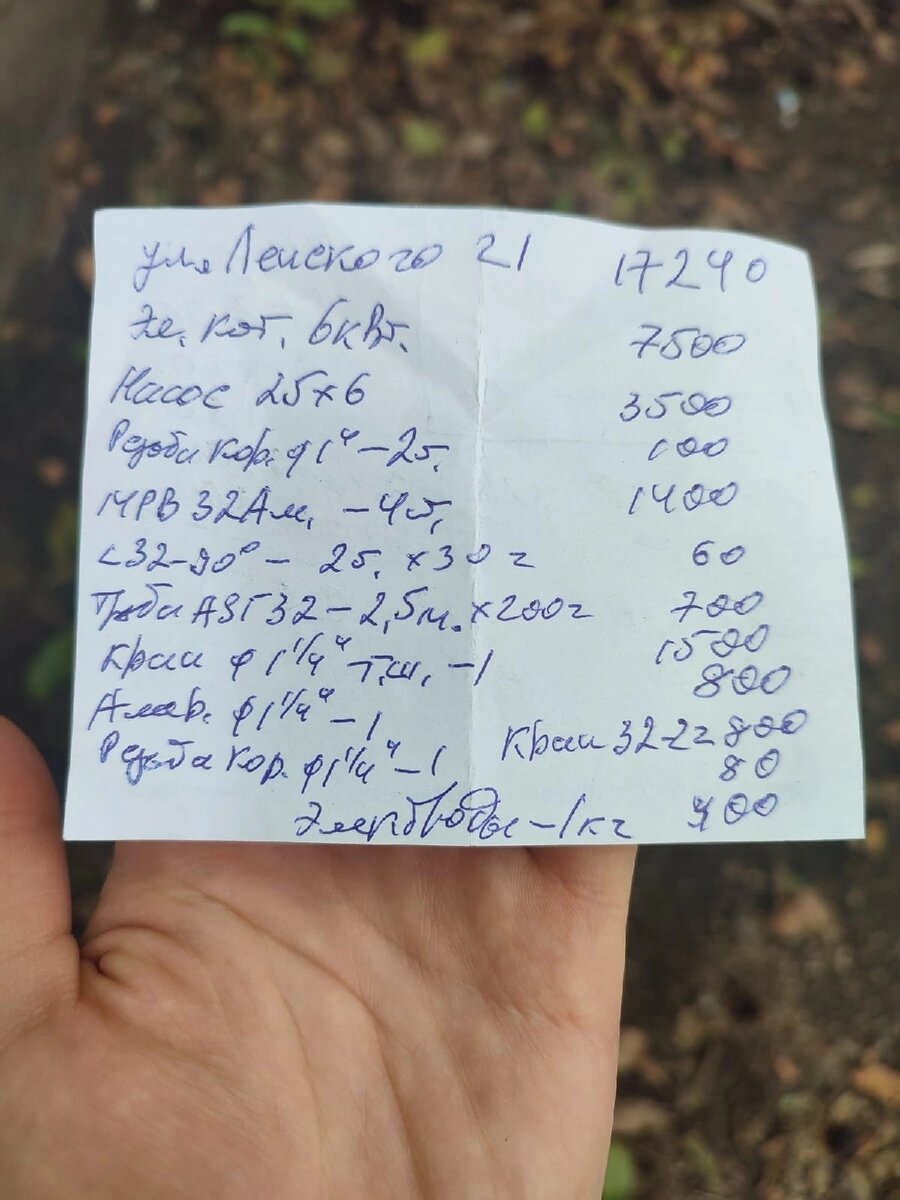 ул. Ленского 21 17240
Эл. кот. 6кВт. 7500
Насос 25×6 3500
Резьба кор. ф1" – 2г. 100
МРВ 32 Ам. – 4г. 1400
<32–90° – 2г. ×30= 60
Труба АSГ32 – 2,5м. ×200= 700
Кран ф1 1/4" – г.ш. – 1 1500
Амер. ф1 1/4" – 1 800
Кран 32–2= 800
Резьба кор. ф1 1/4" – 1 80
Электроды – 1кг 400